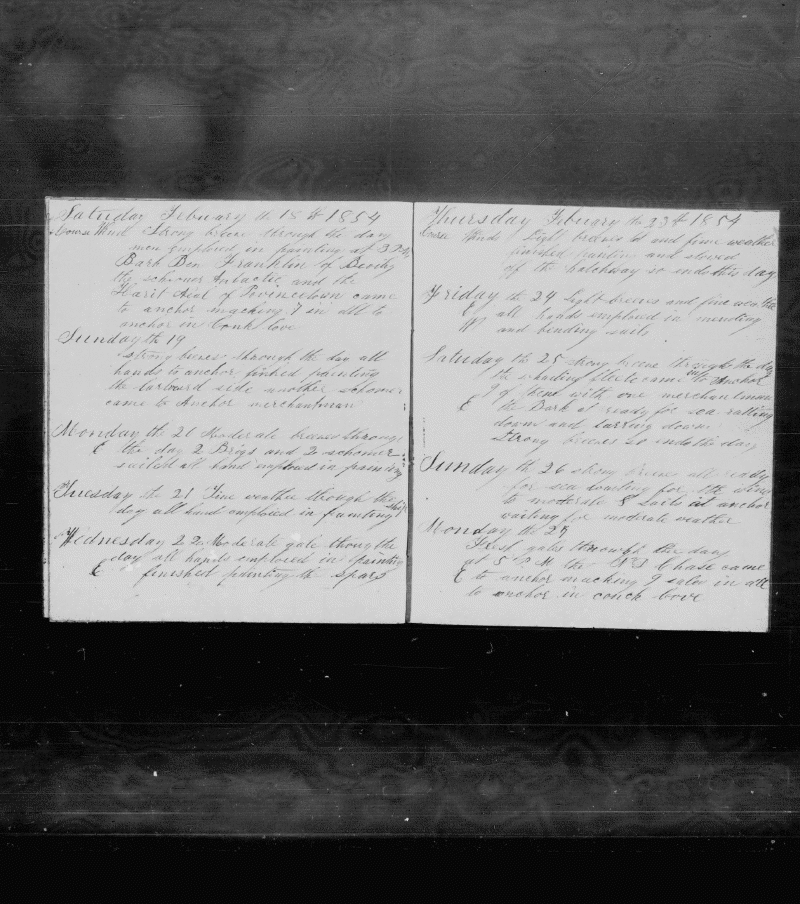 Saturday Febuary the 18th 1854
Course Wind Strong breeze through the day
men employed in painting at 3 P M
Bark Ben Franklin of Beverly
the schooner Antactic and the
Harit Neal of Provincetown came
to anchor macking 7 in all to
anchor in Conk Cove
Sunday th 19
strong breeze through the day all
hands to anchor finished painting
the larboard side another schooner
came to Anchor merchantman
Monday the 20 Moderate breeze through
E the day 2 Brigs and 2 schooner
sailed all hand employed in painting
Tuesday the 21 Fine weather through the
day all hand employed in painting ship
Wednesday 22 Moderate gale though the
day all hands employed in painting
E finished painting the spars
Thursday Febuary the 23th 1854
Course Winds Light breezes and fine weather
finished painting and stoved
of the hatchway so ends this day
Friday the 24 Light breezes and fine weather
all hands employed in mending
and bending sails
Saturday the 25 strong breeze through the day
the whaling fleete came to Anchor
spent with one merchantman
E the Bark at ready for sea ratling
down and tarring down
Strong breezes so ends the day
Sunday th 26 strong breeze all ready
for sea waiting for the wind
to moderate 8 sails at anchor
waiting for moderate weather
Monday the 27
Fresh gales through the day
at 5 P M the Chase came
E to anchor macking 9 sales in all
to anchor in conck Cove